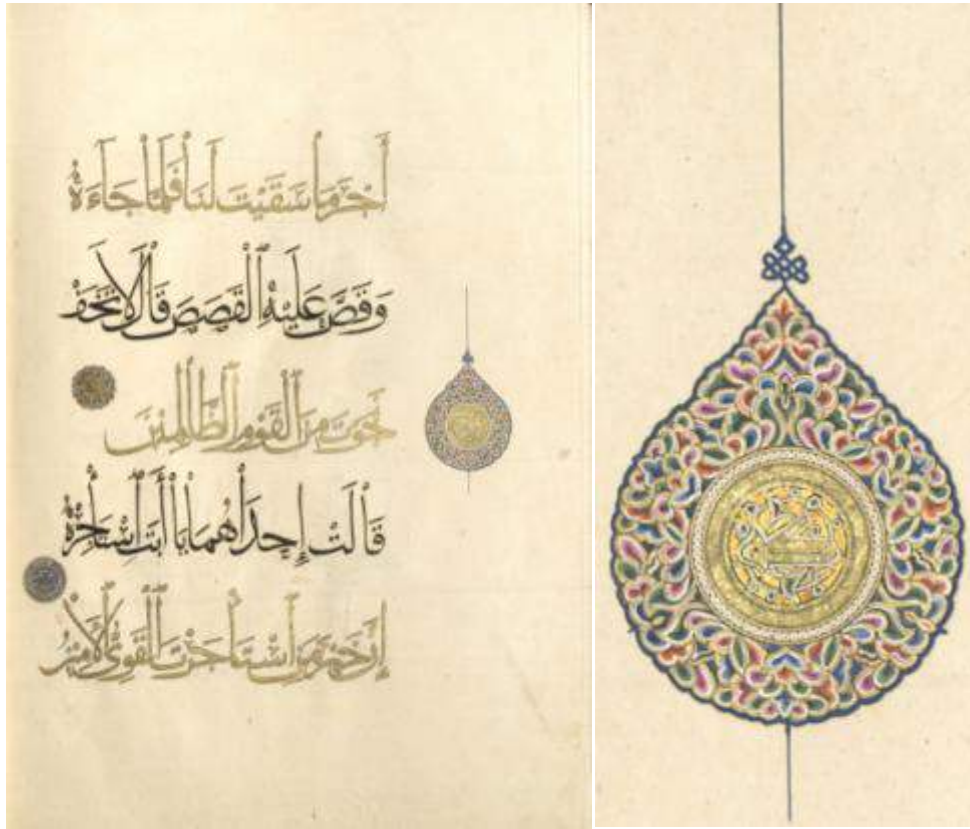 أَجْرَ مَا سَقَيْتَ لَنَا فَلَمَّا جَاءَهُ
وَقَصَّ عَلَيْهِ ٱلْقَصَصَ قَالَ لَا تَخَفْ
نَجَوْتَ مِنَ ٱلْقَوْمِ ٱلظَّالِمِينَ
قَالَتْ إِحْدَاهُمَا يَا أَبَتِ ٱسْتَأْجِرْهُ
إِنَّ خَيْرَ مَنِ ٱسْتَأْجَرْتَ ٱلْقَوِىُّ ٱلْأَمِينُ